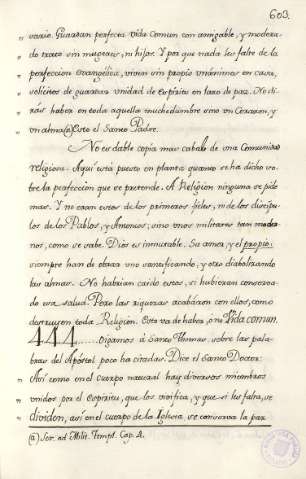 603.
vario. Guardan perfecta vida comun con amigable, y modera-
do trato sin mugeres, ni hijos. Y por que nada les falte de la
perfeccion Evangelica, viven sin propio unanimes en casa,
solícitos de guardar unidad de Espíritu en lazo de paz. No di-
rás haber en toda aquella muchedumbre sino un Corazon, y
un alma (a) Este el Santo Padre.
No es dable copia mas cabal de una Comunidad
religiosa. Aquí está puesto en planta quanto se ha dicho so-
bre la perfeccion que se pretende. A Religion ninguna se pide
mas. Y no eran estos de los primeros fieles, ni de los discípu-
los de los Pablos, y Amones; sino unos militares tan moder-
nos, como se sabe. Dios es inmutable. Su amor, y el propio
siempre han de obrar uno santificando, y otro diabolizando
las almas. No habrian caído estos, si hubieran conserva-
do esa salud. Pero las riquezas acabaron con ellos, como
destruyen toda Religion. Esta va de haber, ó no Vida comun.
444. Oigamos á Santo Tomas sobre las pala-
bras del Apóstol poco ha citadas. Dice el Santo Doctor:
Así como en el Cuerpo natural hay diversos miembros
unidos por el Espíritu, que los vivifica, y que si les falta, se
dividen, así en el cuerpo de la Iglesia se conserva la paz
(a) Ser. ad Milit. Templ. Cap. 4.